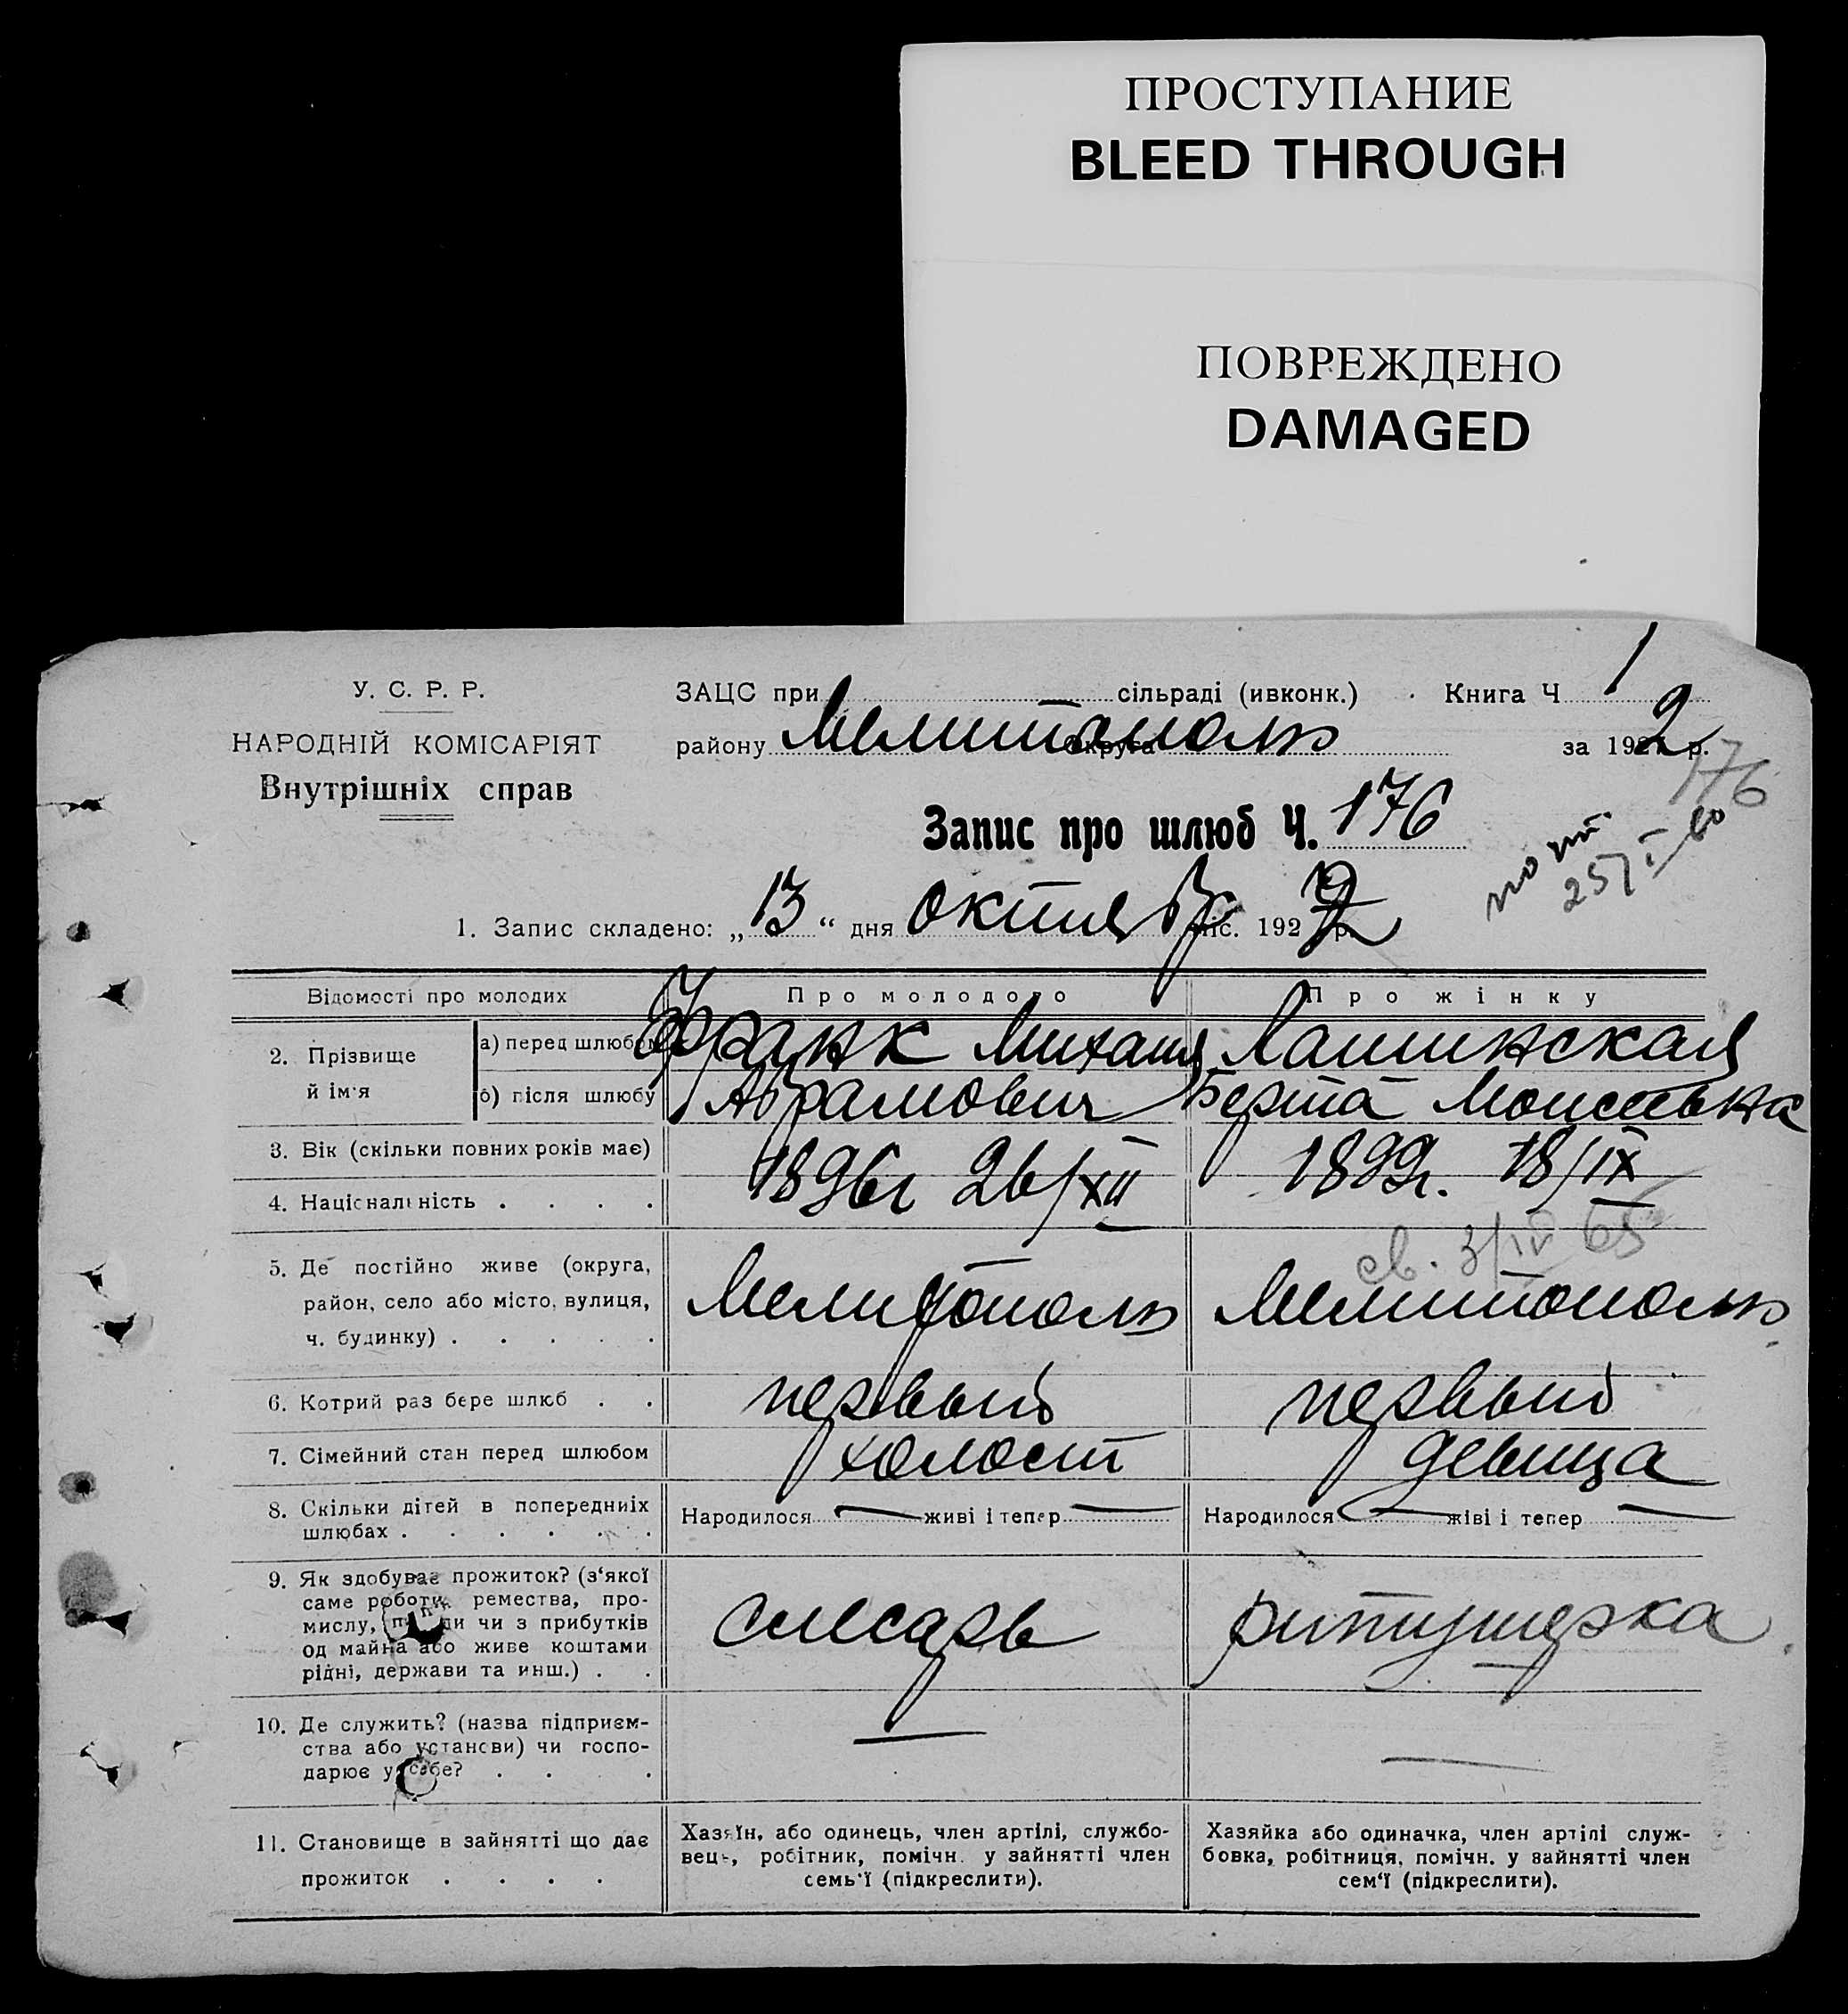 ПРОСТУПАНИЕ
BLEED THROUGH
ПОВРЕЖДЕНО
DAMAGED
У. С. Р. Р.
НАРОДНІЙ КОМІСАРІЯТ
Внутрішніх справ
ЗАЦС при сільраді (ивконк.) Книга Ч 1
району Мелитополь округа за 1922 р.
176
Запис про шлюб Ч. 176
1. Запис складено: „13“ дня октябр міс. 1922 р.
Відомості про молодих Про молодого Про жінку
2. Прізвище й ім'я а) перед шлюбом Франк Михаил Лашинская
б) після шлюбу Абрамович Берта Моисеевна
3. Вік (скільки повних років має)
1896г 26/XII 1899г. 18/IX
4. Національність . . . .
св. 3/IV 65
5. Де постійно живе (округа,
район, село або місто, вулиця,
ч. будинку) . . . . .
Мелитополь Мелитополь
6. Котрий раз бере шлюб . . первый первый
7. Сімейний стан перед шлюбом холост девица
8. Скільки дітей в попередніх
шлюбах . . . . . .
Народилося — живі і тепер — Народилося — жіві і тепер —
9. Як здобуває прожиток? (з'якої
саме роботи, ремества, про-
мислу, ди чи з прибутків
од майна або живе коштами
рідні, держави та инш.) . .
слесарь ритушерка
10. Де служить? (назва підприєм-
ства або установи) чи госпо-
дарює у себе? . . .
— —
11. Становище в зайнятті що дає
прожиток . . . .
Хазяїн, або одинець, член артілі, службо-
вець, робітник, помічн. у зайнятті член
семь'ї (підкреслити).
Хазяйка або одиначка, член артілі служ-
бовка, робітниця, помічн. у зайнятті член
сем'ї (підкреслити).